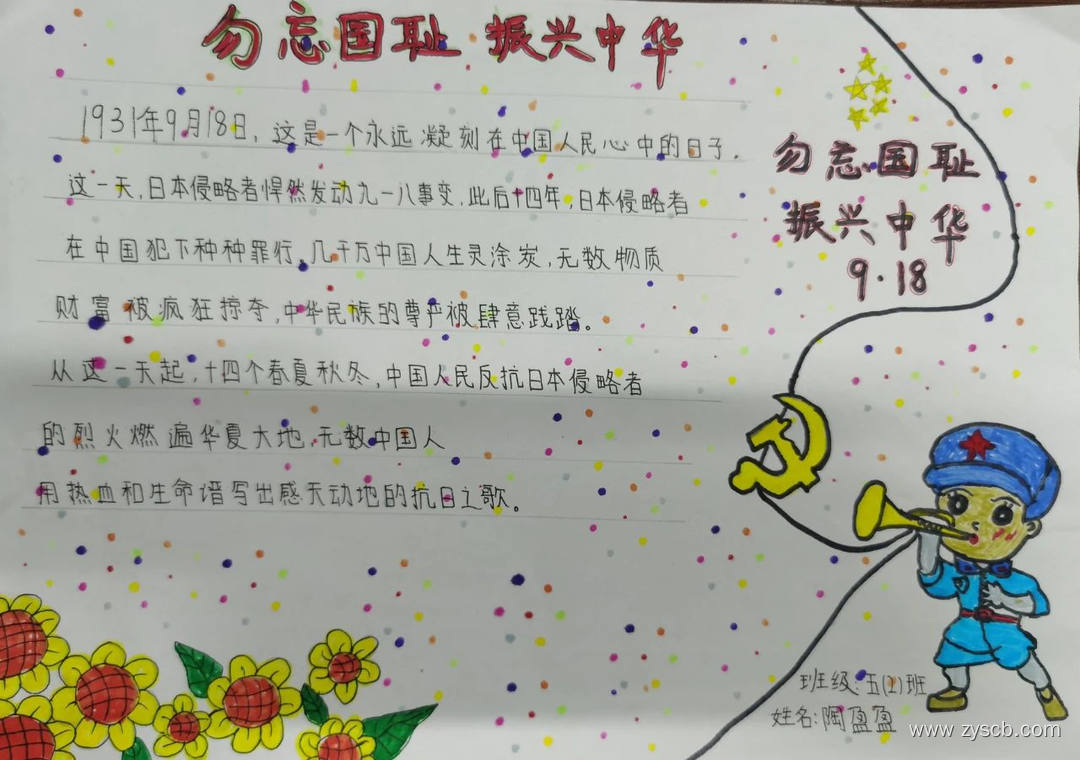 勿忘国耻 振兴中华
1931年9月18日，这是一个永远凝刻在中国人民心中的日子。
这一天，日本侵略者悍然发动九一八事变，此后十四年，日本侵略者
在中国犯下种种罪行。几千万中国人生灵涂炭，无数物质
财富被疯狂掠夺，中华民族的尊严被肆意践踏。
从这一天起，十四个春夏秋冬，中国人民反抗日本侵略者
的烈火燃遍华夏大地，无数中国人
用热血和生命谱写出感天动地的抗日之歌。
勿忘国耻
振兴中华
9·18
班级：五(2)班
姓名：陶盈盈
www.zyscb.com